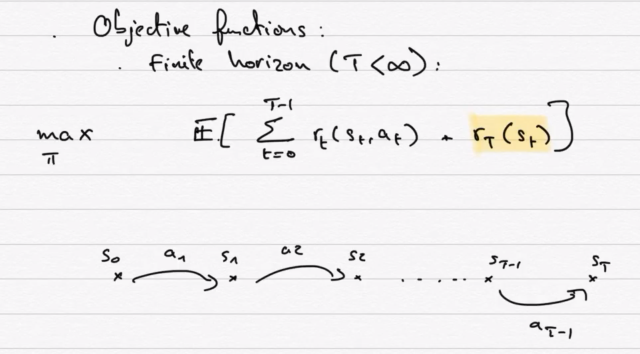 . Objective functions:
. Finite horizon (T<∞):
max π E[ ∑_{t=0}^{T-1} r_t(s_t, a_t) + r_T(s_t) ]
s_0 a_1 s_1 a_2 s_2 ..... s_{T-1} s_T
a_{T-1}